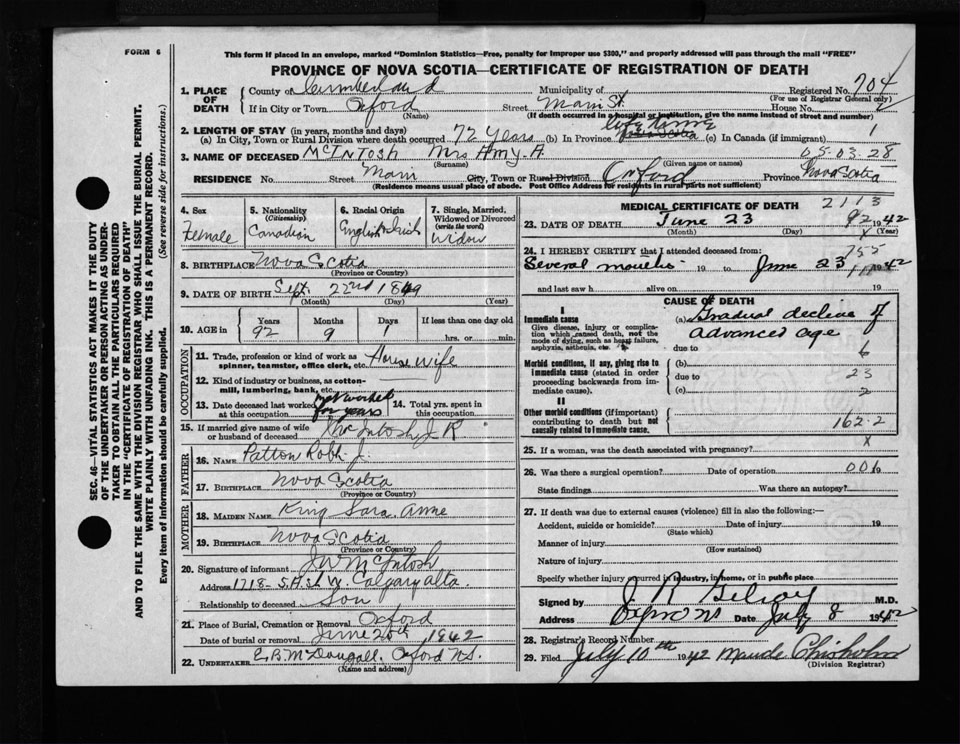 FORM 6
This form if placed in an envelope, marked "Dominion Statistics—Free, penalty for improper use $300," and properly addressed will pass through the mail "FREE"
PROVINCE OF NOVA SCOTIA—CERTIFICATE OF REGISTRATION OF DEATH
SEC. 46—VITAL STATISTICS ACT MAKES IT THE DUTY
OF THE UNDERTAKER OR PERSON ACTING AS UNDER-
TAKER TO OBTAIN ALL THE PARTICULARS REQUIRED
IN THE "CERTIFICATE OF REGISTRATION OF DEATH"
AND TO FILE THE SAME WITH THE DIVISION REGISTRAR WHO SHALL ISSUE THE BURIAL PERMIT.
WRITE PLAINLY WITH UNFADING INK. THIS IS A PERMANENT RECORD.
Every item of information should be carefully supplied. (See reverse side for instructions.)
1. PLACE OF DEATH County of Cumberland Municipality of Registered No. 704
(For use of Registrar General only)
If in City or Town Oxford Street Main St. House No.
(Name) (If death occurred in a hospital or institution, give the name instead of street and number)
2. LENGTH OF STAY (in years, months and days)
(a) In City, Town or Rural Division where death occurred 72 years (b) In Province Life time (c) In Canada (if immigrant) 1
3. NAME OF DECEASED McIntosh Mrs Amy. A. 05.03.28
(Surname) (Given name or names)
RESIDENCE No. Street Main City, Town or Rural Division Oxford Province Nova Scotia
(Residence means usual place of abode. Post Office Address for residents in rural parts not sufficient)
4. Sex Female
5. Nationality (Citizenship) Canadian
6. Racial Origin English Irish
7. Single, Married, Widowed or Divorced (write the word) Widow
8. BIRTHPLACE Nova Scotia
(Province or Country)
9. DATE OF BIRTH Sept. 22nd 1849
(Month) (Day) (Year)
10. AGE in Years Months Days If less than one day old
92 9 1 hrs. or min.
OCCUPATION
11. Trade, profession or kind of work as spinner, teamster, office clerk, etc. House wife
12. Kind of industry or business, as cotton-mill, lumbering, bank, etc.
13. Date deceased last worked at this occupation not worked for years 14. Total yrs. spent in this occupation
15. If married give name of wife or husband of deceased McIntosh J R
FATHER
16. NAME Patton Robt J.
17. BIRTHPLACE Nova Scotia
(Province or Country)
MOTHER
18. MAIDEN NAME King Sara Anne
19. BIRTHPLACE Nova Scotia
(Province or Country)
20. Signature of informant J W McIntosh
Address 1718- W. Calgary alta.
Relationship to deceased Son
21. Place of Burial, Cremation or Removal Oxford
Date of burial or removal June 1942
22. UNDERTAKER E. B. McDougall. Oxford N.S.
(Name and address)
MEDICAL CERTIFICATE OF DEATH 2113
23. DATE OF DEATH June 23 92 1942
(Month) (Day) (Year)
24. I HEREBY CERTIFY that I attended deceased from: 755
Several months 19 to June 23 1942
and last saw h alive on 19
CAUSE OF DEATH
I
Immediate cause (a) Gradual decline of advanced age
Give disease, injury or complication which caused death, not the mode of dying, such as heart failure, asphyxia, asthenia, etc.
due to 6
Morbid conditions, if any, giving rise to immediate cause (stated in order proceeding backwards from immediate cause).
(b)
due to 23
(c) 2
II
Other morbid conditions (if important) contributing to death but not causally related to immediate cause. 162.2
25. If a woman, was the death associated with pregnancy? x
26. Was there a surgical operation? Date of operation 001 19
State findings Was there an autopsy?
27. If death was due to external causes (violence) fill in also the following:—
Accident, suicide or homicide? Date of injury 19
(State which)
Manner of injury
(How sustained)
Nature of injury
Specify whether injury occurred in industry, in home, or in public place
Signed by J. R. Gilroy M.D.
Address Date July 8 1942
28. Registrar's Record Number
29. Filed July 10th 1942 Maude Chisholm
(Division Registrar)